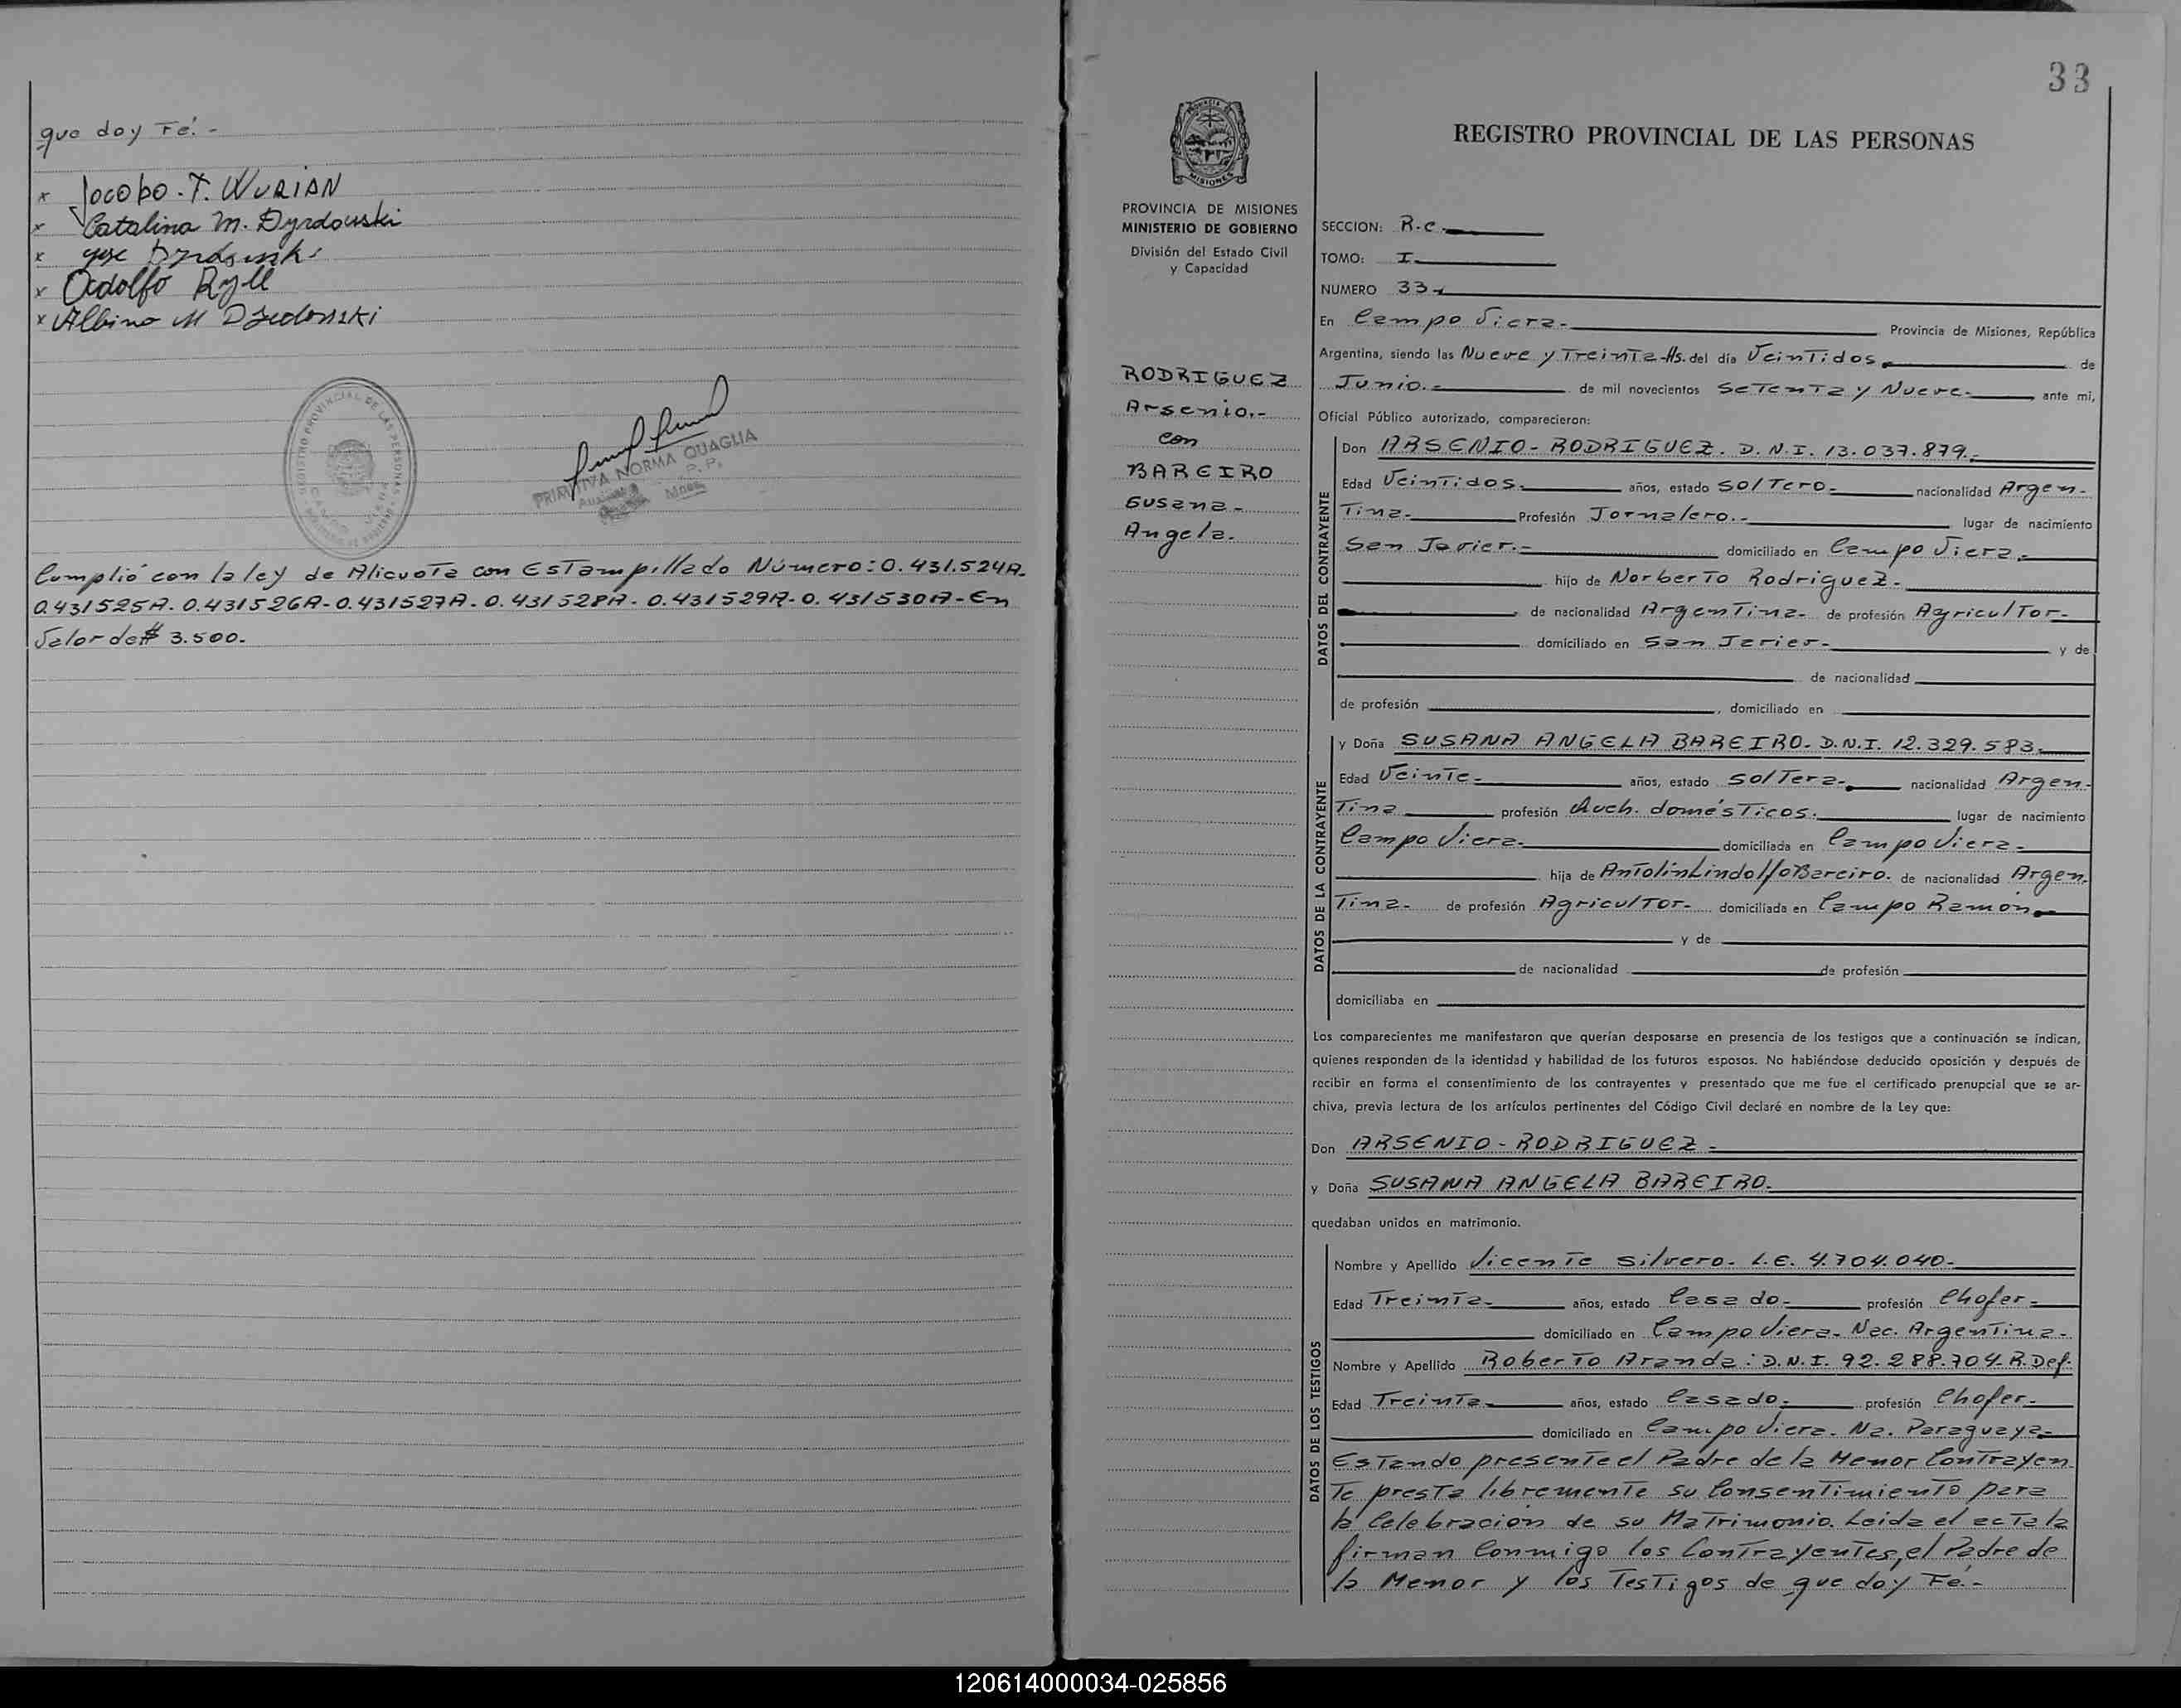 que doy Fé.-
x Jocobo. T. WURIAN
x Catalina M. Dyrdowski
x
x Ododlfo Ryll
x Albino M
REGISTRO PROVINCIAL DE LAS PERSONAS
PRIMITIVA NORMA QUAGLIA
P. P.
Mnes.
Cumplió con la ley de Alicuota con Estampillado Número: 0.431.524A.
0.431525A. 0.431526A-0.431527A. 0.431528A. 0.431529A. 0.431530A-En
Valor de $ 3.500.
33
PROVINCIA DE MISIONES
MINISTERIO DE GOBIERNO
División del Estado Civil
y Capacidad
RODRIGUEZ
Arsenio.-
con
BAREIRO
Susana-
Angela.
REGISTRO PROVINCIAL DE LAS PERSONAS
SECCION: R.C.
TOMO: I
NUMERO 33
En Campo Viera.- Provincia de Misiones, República
Argentina, siendo las Nueve y Treinta-Hs. del día Veintidos de
Junio.- de mil novecientos Setenta y Nueve.- ante mi,
Oficial Público autorizado, comparecieron:
DATOS DEL CONTRAYENTE
Don ARSENIO-RODRIGUEZ. D.N.I. 13.037.879.-
Edad Veintidos. años, estado Soltero- nacionalidad Argen-
tina- Profesión Jornalero.- lugar de nacimiento
San Javier.- domiciliado en Campo Viera.-
hijo de Norberto Rodriguez.-
de nacionalidad Argentina- de profesión Agricultor-
domiciliado en San Javier- y de
de nacionalidad
de profesión , domiciliado en
DATOS DE LA CONTRAYENTE
y Doña SUSANA ANGELA BAREIRO. D.N.I. 12.329.583.
Edad Veinte- años, estado Soltera- nacionalidad Argen-
tina profesión Queh. domésticos. lugar de nacimiento
Campo Viera- domiciliada en Campo Viera-
hija de Antolín Lindolfo Bareiro. de nacionalidad Argen-
tina- de profesión Agricultor- domiciliada en Campo Ramón
y de
de nacionalidad de profesión
domiciliaba en
Los comparecientes me manifestaron que querían desposarse en presencia de los testigos que a continuación se indican,
quienes responden de la identidad y habilidad de los futuros esposos. No habiéndose deducido oposición y después de
recibir en forma el consentimiento de los contrayentes y presentado que me fue el certificado prenupcial que se ar-
chiva, previa lectura de los artículos pertinentes del Código Civil declaré en nombre de la Ley que:
Don ARSENIO-RODRIGUEZ-
y Doña SUSANA ANGELA BAREIRO.
quedaban unidos en matrimonio.
DATOS DE LOS TESTIGOS
Nombre y Apellido Vicente Silvero- L.E. 4.704.040-
Edad Treinta- años, estado Casado- profesión Chofer-
domiciliado en Campo Viera. Nac. Argentina-
Nombre y Apellido Roberto Aranda: D.N.I. 92.288.704. R.Def.
Edad Treinta años, estado Casado- profesión Chofer-
domiciliado en Campo Viera. Na. Paraguaya-
Estando presente el Padre de la Menor Contrayen-
te presta libremente su Consentimiento para
la Celebración de su Matrimonio. Leida el acta la
firman Conmigo los Contrayentes, el Padre de
la Menor y los Testigos de que doy Fé.-
120614000034-025856